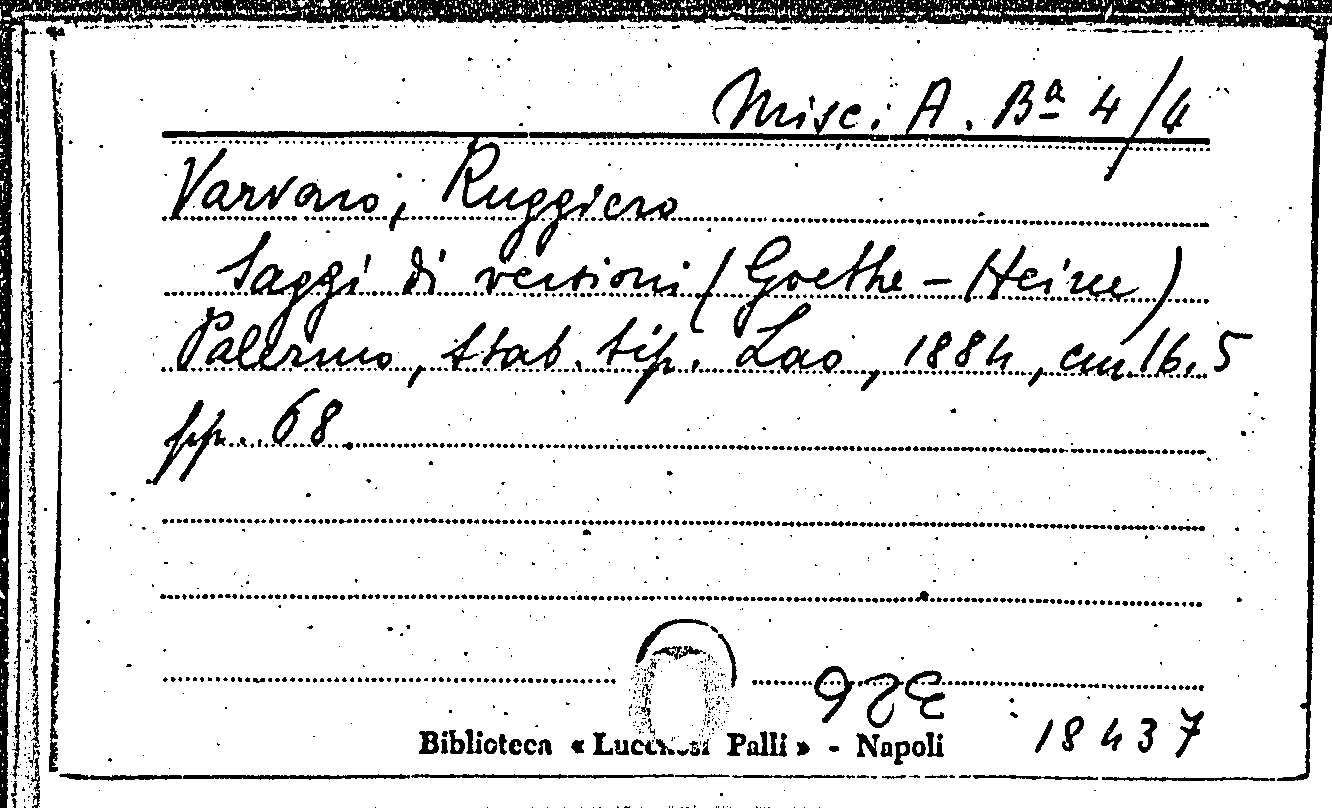 Misc. A. Bª 4/4
Varvaro, Ruggiero
Saggi di versioni (Goethe - Heine)
Palermo, stab. tip. Lao, 1884, cm 16.5
pp. 68.
18437
Biblioteca « Lucchesi Palli » - Napoli